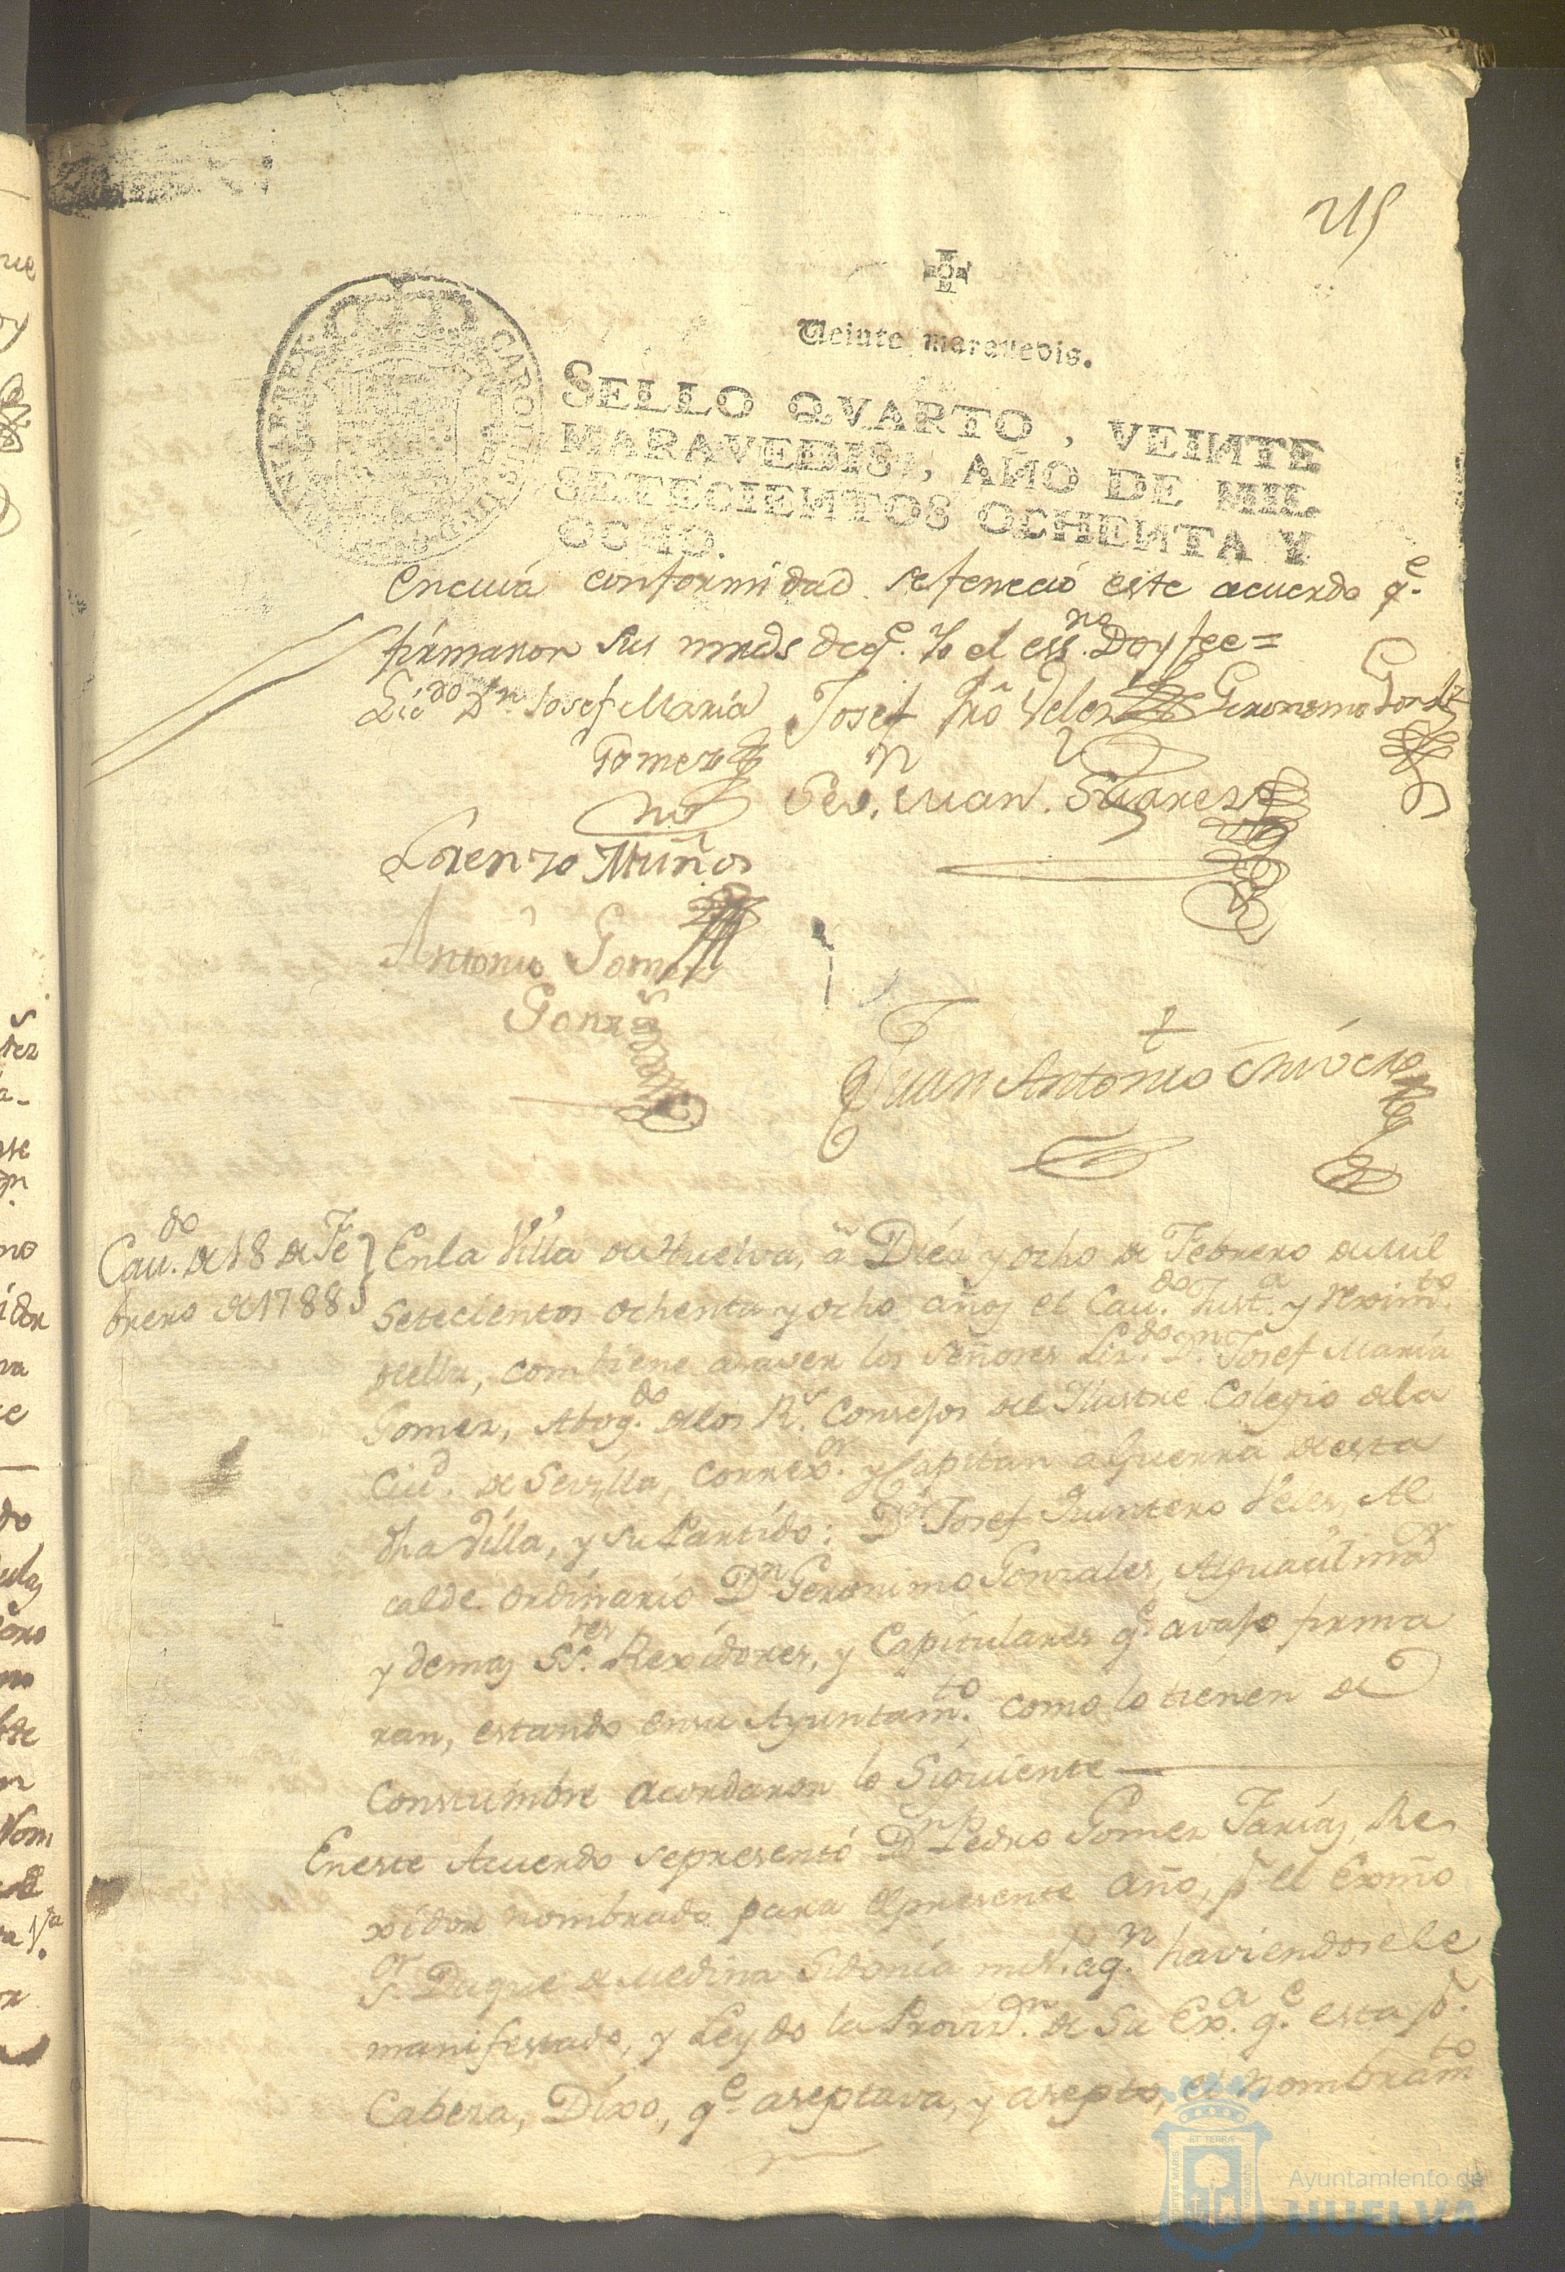 215
Veinte maravedis.
SELLO QVARTO, VEINTE
MARAVEDIS, AÑO DE MIL
SETECIENTOS OCHENTA Y
OCHO.
en cuia conformidad se feneció este acuerdo q.e
firmaron sus mrds de q.e Yo el ess.no Doy fee=
Lic.do D.n Josef Maria Gomez
Josef Qro Velez
Geronimo Gonz
Juan Suarez
Lorenzo Muños
Antonio Gomez
Gonz
Juan Antonio
Cau.do de 18 de Fe
brero de 1788
En la Villa de Huelva, a Diez y ocho de Febrero de mil
Setecientos ochenta y ocho años el Cau.do Just.a y Rexim.to
della, combiene a saver los Señores Liz.do D.n Josef Maria
Gomez, Abog.do de los R.s Consejos del Ilustre Colegio de la
Ciu.d de Sevilla, Correx.or y Capitan a Guerra de esta
dha Villa, y su Partido: D.n Josef Quintero Velez, Al
calde ordinario D.n Geronimo Gonzales, Alguacil mor
y demas SS.res Rexidores, y Capitulares q.e avajo firma
ran, estando en su Ayuntam.to como lo tienen de
Constumbre acordaron lo Siguiente
En este Acuerdo se presentó D.n Pedro Gomez Farias, Re
xidor nombrado para el presente año, p.r el Exmo
S.or Duque de Medina Sidonia mi S.r a q.n haviendosele
manifestado, y Leydo la Provid.n de Su Ex.a q.e esta p.r
Cabeza, Dixo, q.e aseptava, y asepto, el nombram.to
Ayuntamiento de
HUELVA